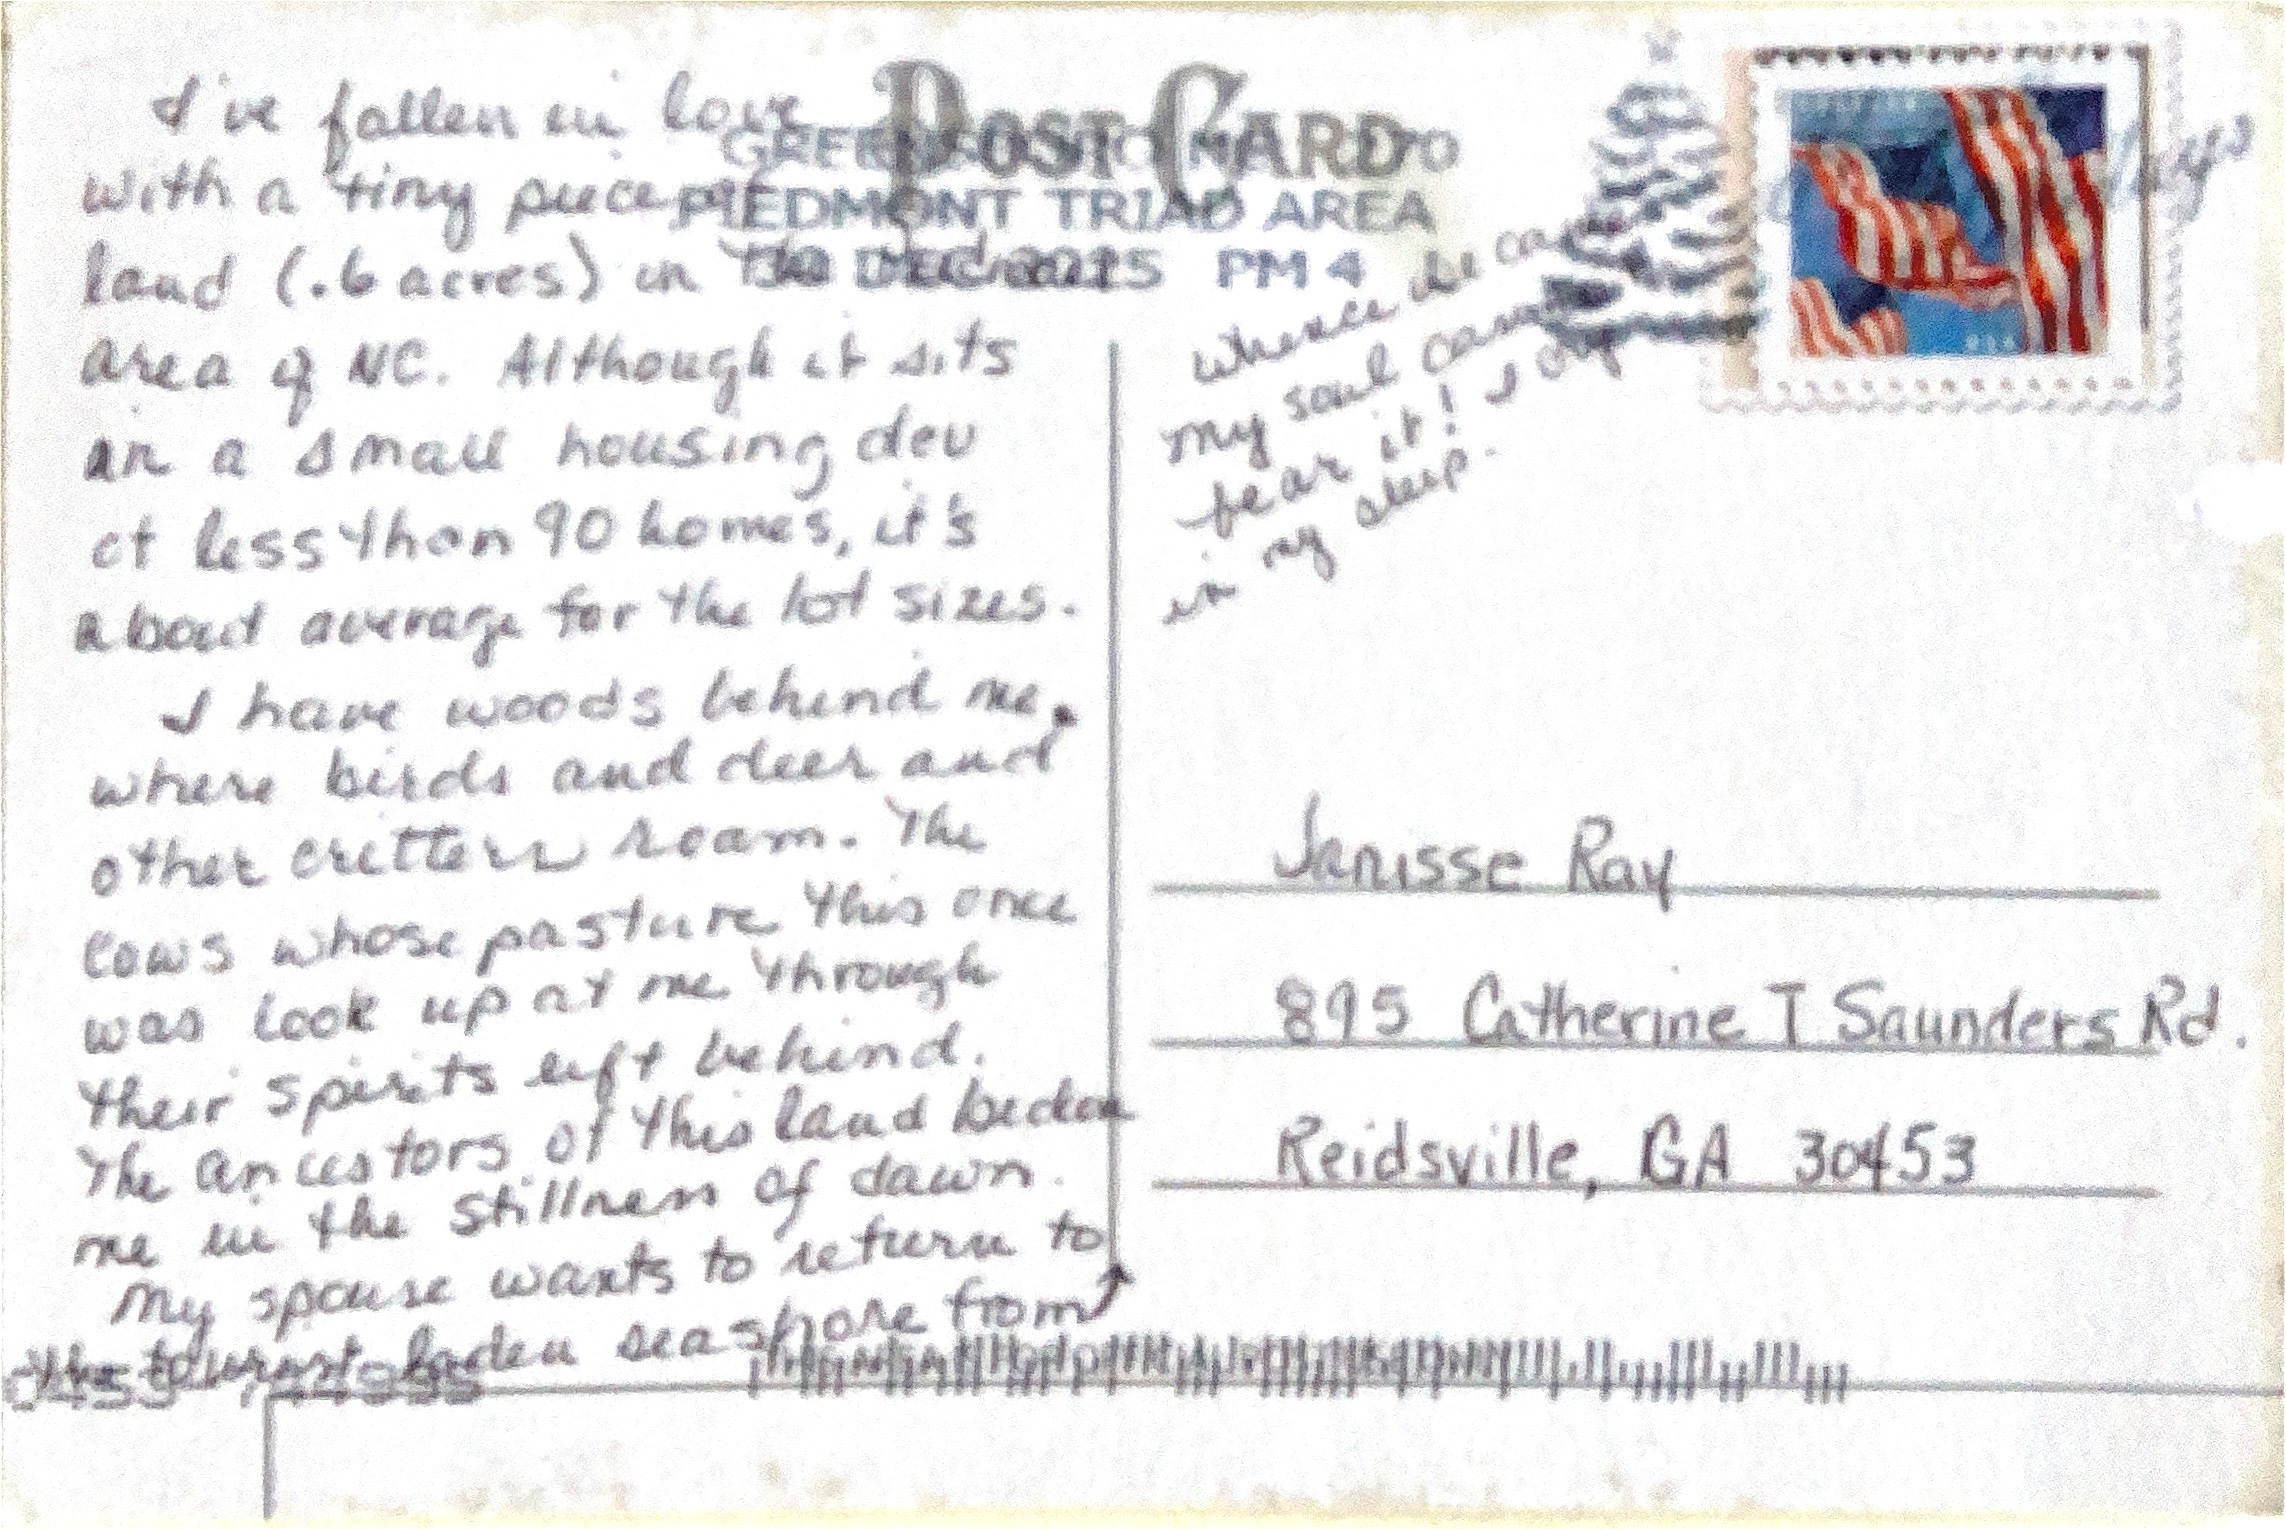 I've fallen in love
with a tiny piece of
land (.6 acres) in the
area of NC. Although it sits
in a small housing dev
of less than 90 homes, it's
about average for the lot sizes.
I have woods behind me,
where birds and deer and
other critters roam. The
cows whose pasture this once
was look up at me through
their spirits left behind.
The ancestors of this land beckon
me in the stillness of dawn.
My spouse wants to return to
the tourist-laden seashore from
whence he came
my soul cannot
bear it! I cry
in my sleep.
POST CARD
PIEDMONT TRIAD AREA
30 DEC 2025 PM 4
Janisse Ray
895 Catherine T Saunders Rd.
Reidsville, GA 30453